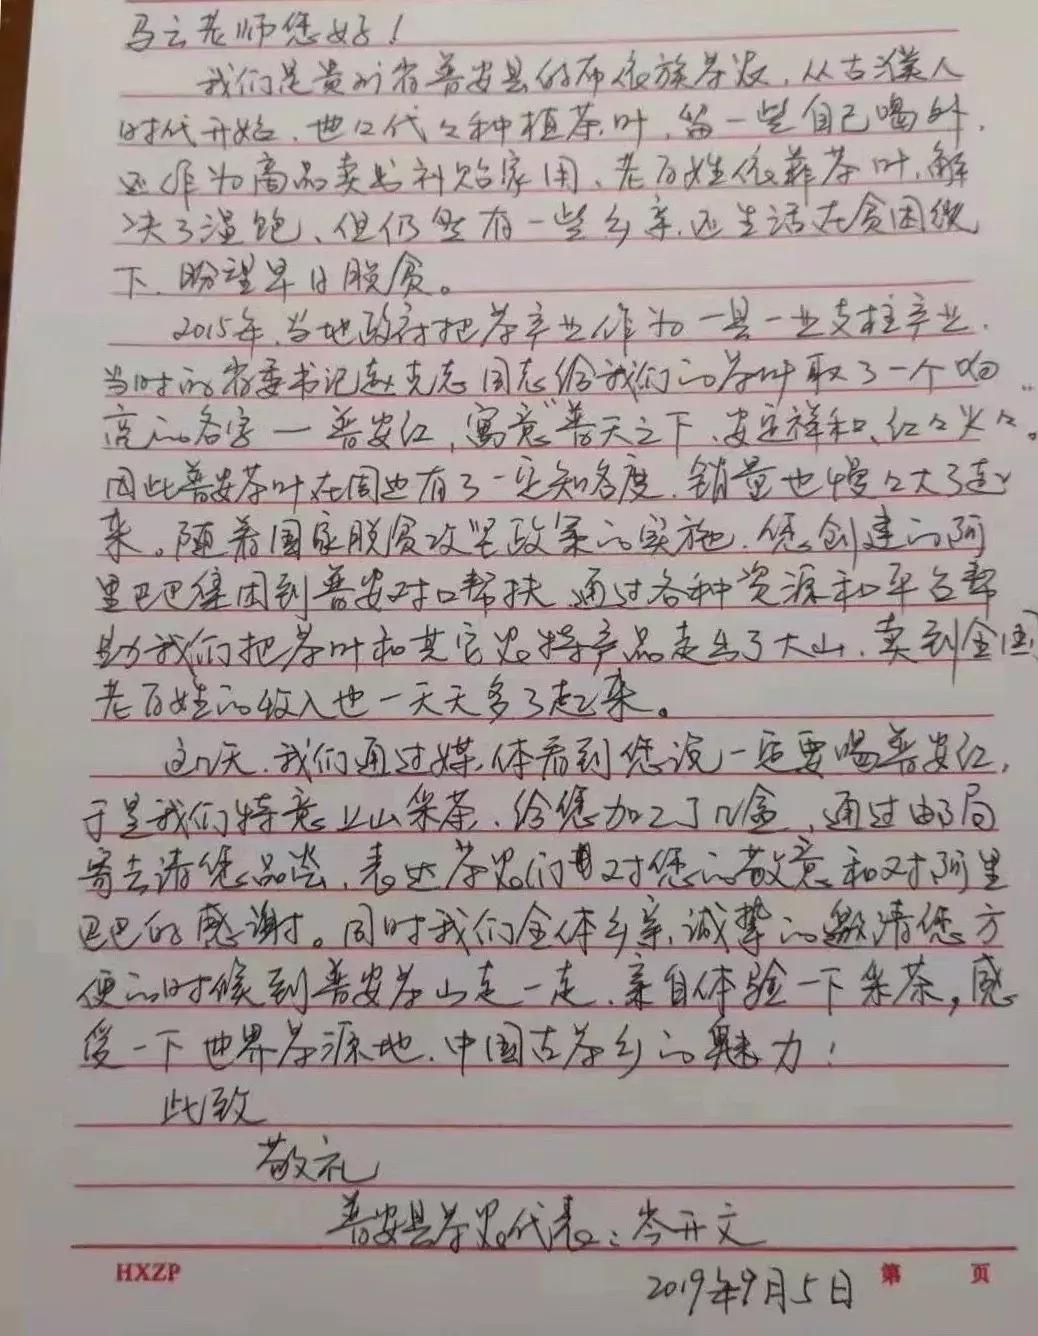 马云老师您好！
我们是贵州省普安县的布依族茶农，从古濮人
时代开始，世世代代种植茶叶，留一些自己喝外，
还作为商品卖出补贴家用、老百姓依靠茶叶，解
决了温饱、但仍然有一些乡亲，还生活在贫困线
下，盼望早日脱贫。
2015年，当地政府把茶产业作为一县一业支柱产业，
当时的省委书记赵克志同志给我们的茶叶取了一个响
亮的名字—普安红，寓意"普天之下、安定祥和、红红火火。
因此普安茶叶在周边有了一定知名度，销量也慢慢大了起
来。随着国家脱贫攻坚政策的实施，您创建的阿
里巴巴集团到普安对口帮扶，通过各种资源和平台帮
助我们把茶叶和其它农特产品走出了大山，卖到全国
老百姓的收入也一天天多了起来。
这几天，我们通过媒体看到您说一定要喝普安红，
于是我们特意上山采茶、给您加工了几盒，通过邮局
寄去请您品尝，表达茶农们对您的敬意和对阿里
巴巴的感谢。同时我们全体乡亲，诚挚的邀请您方
便的时候到普安茶山走一走，亲自体验一下采茶，感
受一下世界茶源地、中国古茶乡的魅力！
此致
敬礼
普安县茶农代表：岑开文
HXZP 第 页
2019年9月5日